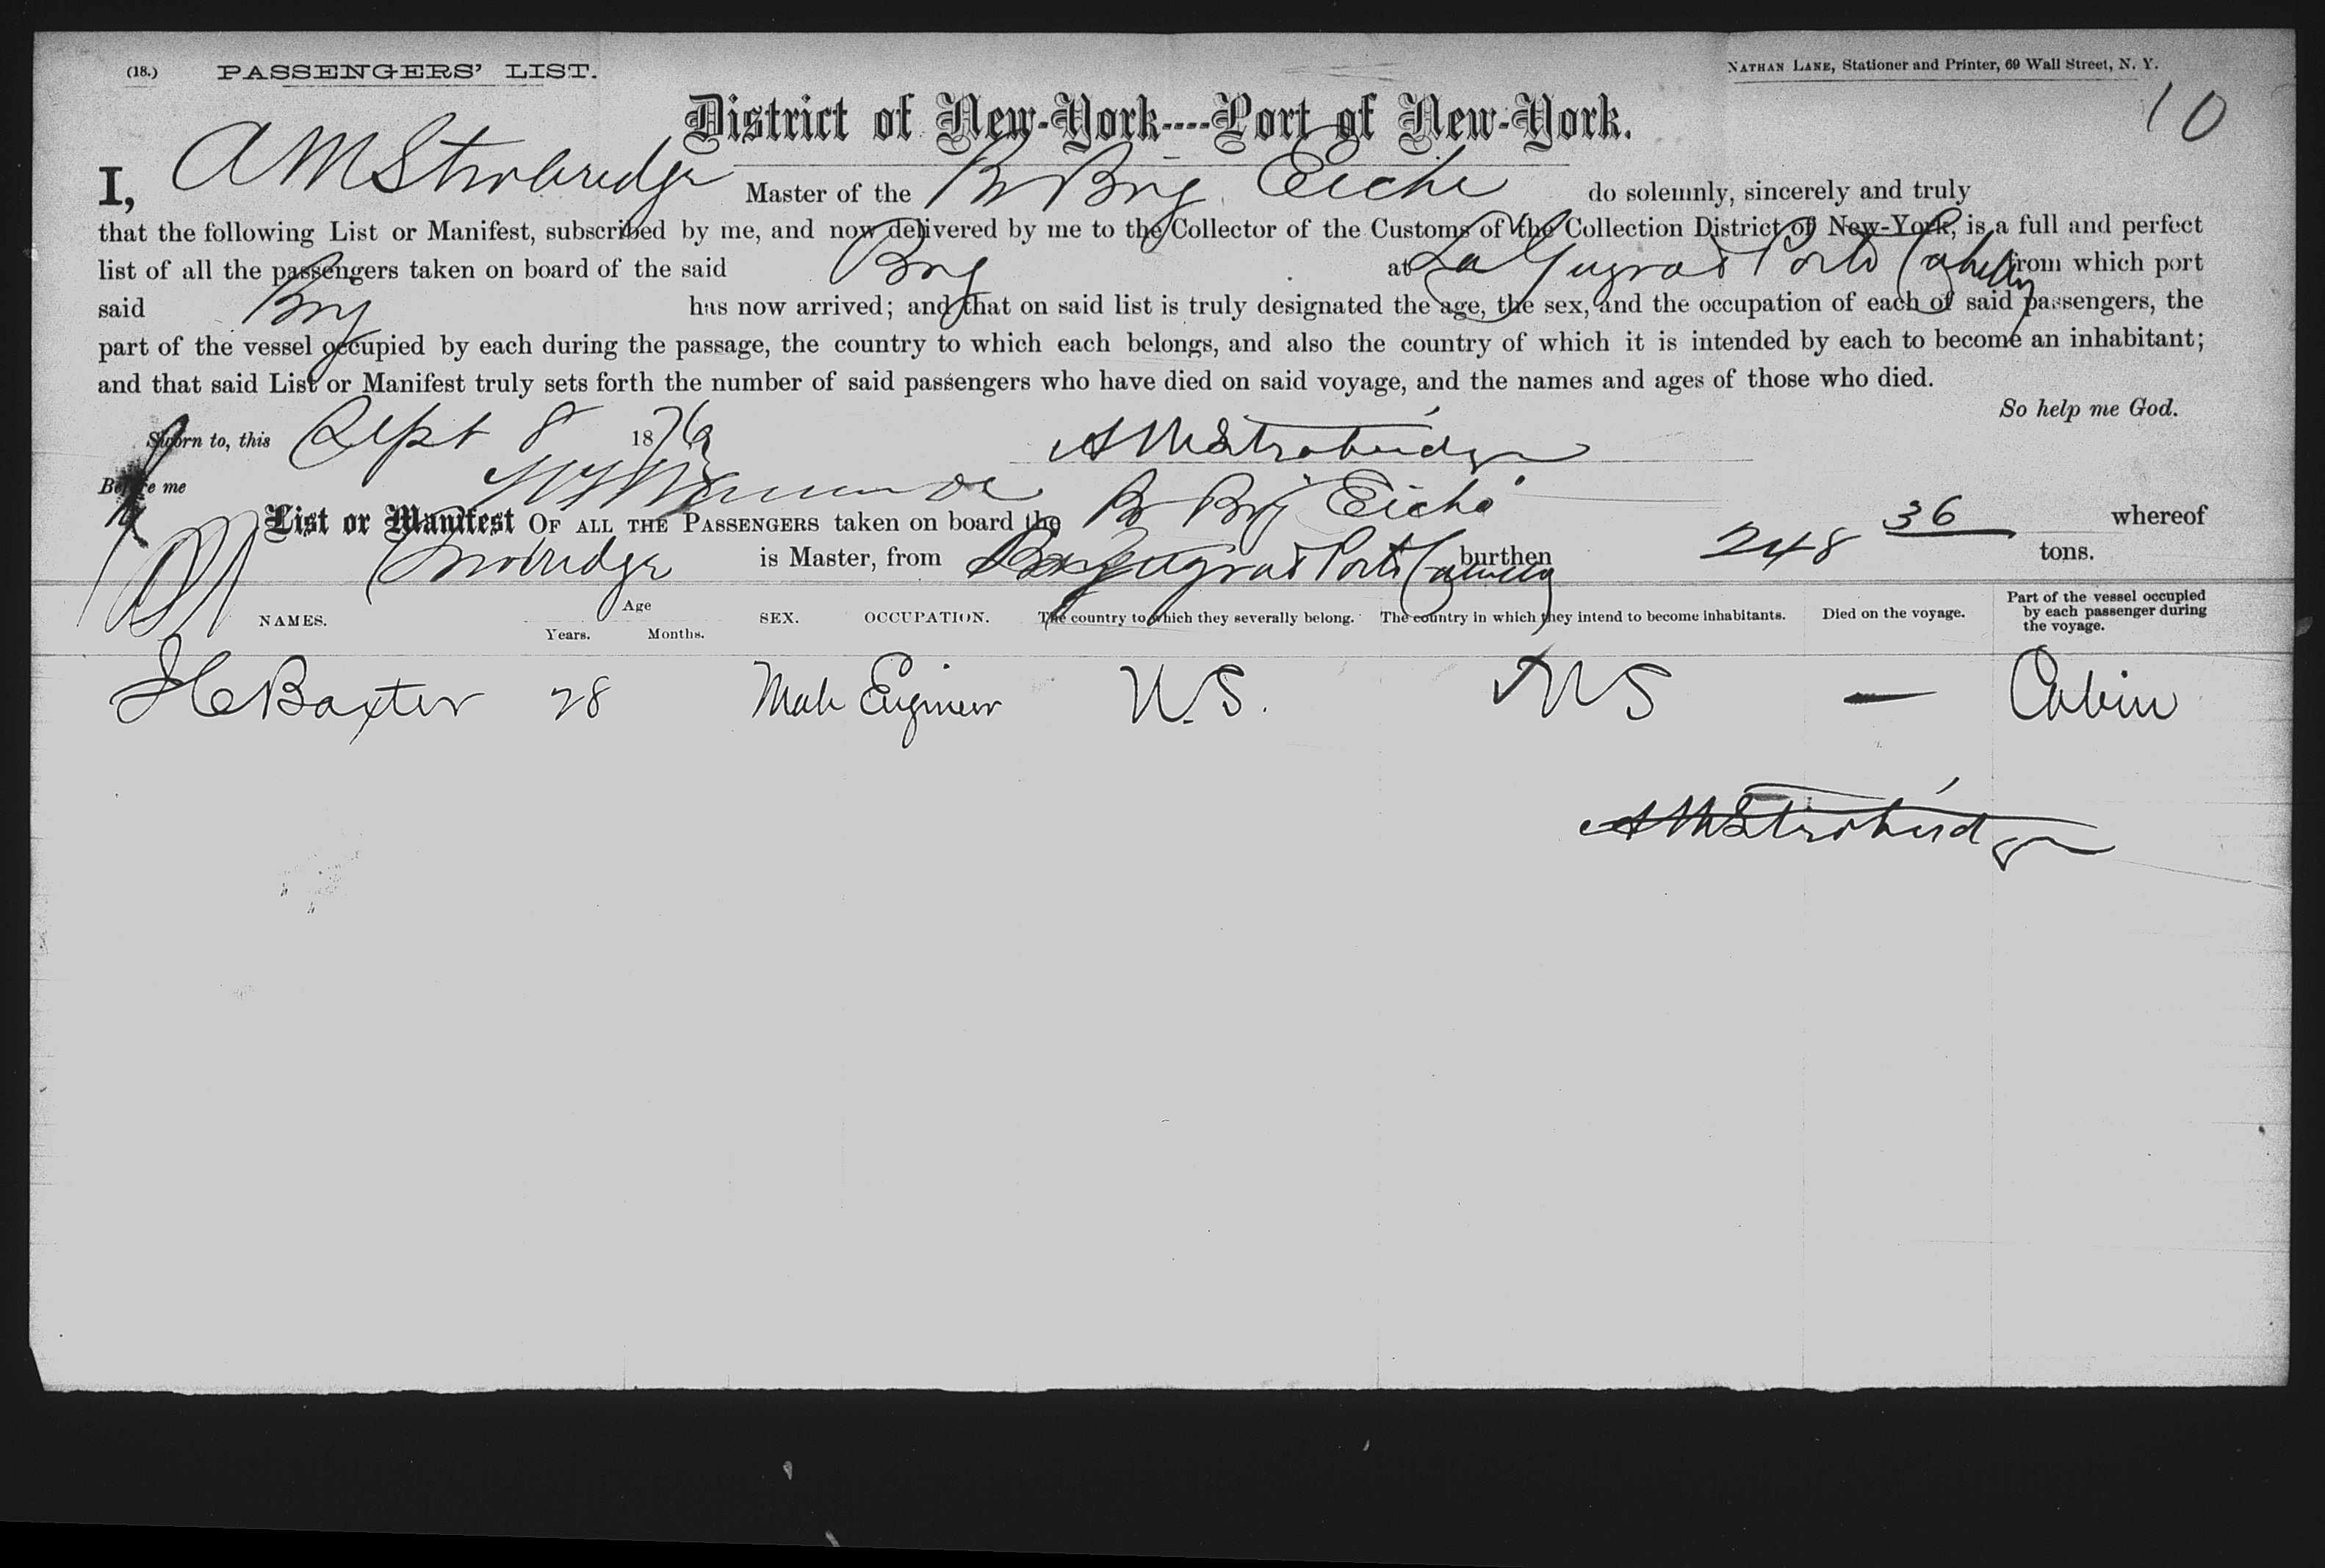 (18.) PASSENGERS' LIST. NATHAN LANE, Stationer and Printer, 69 Wall Street, N. Y.
10
District of New-York----Port of New-York.
I, A M Strobridge Master of the Br Brig Eiche do solemnly, sincerely and truly
that the following List or Manifest, subscribed by me, and now delivered by me to the Collector of the Customs of the Collection District of New-York, is a full and perfect
list of all the passengers taken on board of the said Brig at La Guyra & Porto Cabello from which port
said Brig has now arrived; and that on said list is truly designated the age, the sex, and the occupation of each of said passengers, the
part of the vessel occupied by each during the passage, the country to which each belongs, and also the country of which it is intended by each to become an inhabitant;
and that said List or Manifest truly sets forth the number of said passengers who have died on said voyage, and the names and ages of those who died.
So help me God.
Sworn to, this Sept 8 1876 A M Strobridge
Before me
List or Manifest OF ALL THE PASSENGERS taken on board the Br Brig Eiche 36 whereof
Strobridge is Master, from Laguyra & Porto Cabello burthen 248 tons.
NAMES. Age Years. Months. SEX. OCCUPATION. The country to which they severally belong. The country in which they intend to become inhabitants. Died on the voyage. Part of the vessel occupied by each passenger during the voyage.
Baxter 28 Male Engineer U.S. U S — Cabin
A M Strobridge